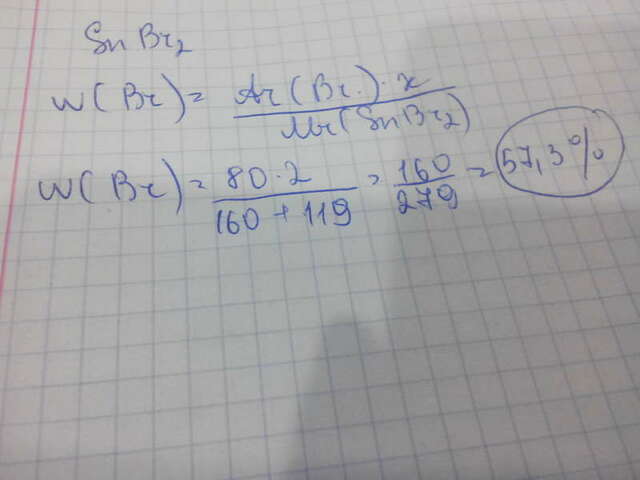 SnBr₂
w(Br) = Ar(Br)·x / Mr(SnBr₂)
w(Br) = 80·2 / 160+119 = 160 / 279 = 57,3%